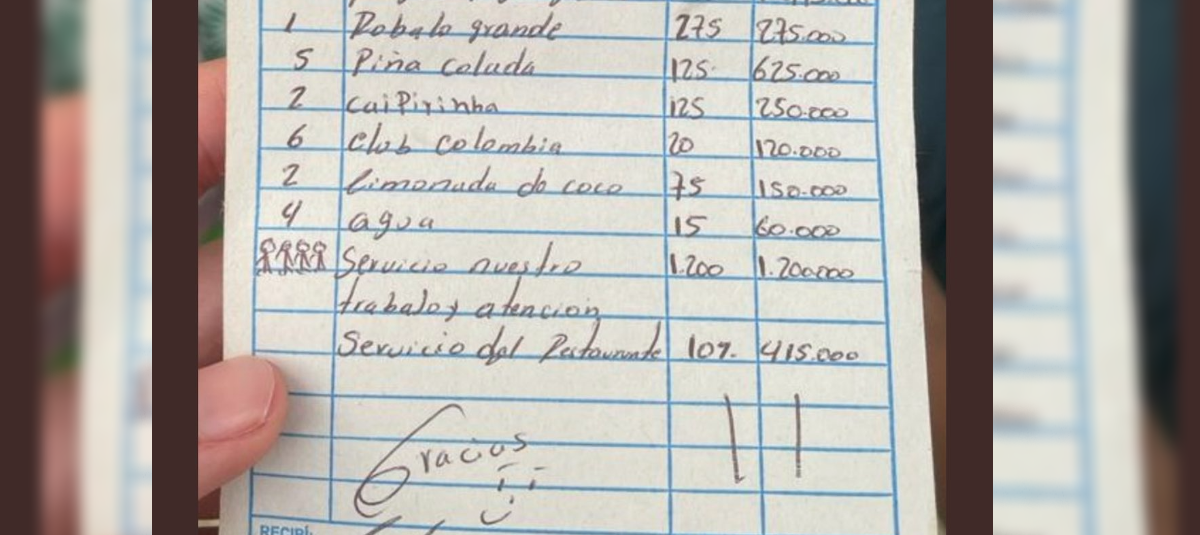 1 Robalo grande 275 275.000
5 Piña colada 125 625.000
2 CaiPirinha 125 250.000
6 Club colombia 20 120.000
2 limonada do coco 75 150.000
4 agua 15 60.000
Servicio nuestro 1.200 1.200.000
trabalo y atencion
Servicio del Restaurante 10% 415.000
Gracias
RECIBÍ: